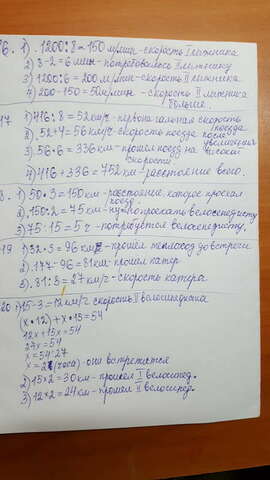 6. 1). 1200:8=150 м/мин-скорость I лыжника
2) 8-2=6 мин-потребовалось II лыжнику
3) 1200:6=200 м/мин-скорость II лыжника
4) 200-150=50 м/мин-скорость II лыжника больше.
17 1) 416:8=52 км/ч-первоначальная скорость поезда
2). 52+4=56 км/ч-скорость поезда после увеличения
3) 56·6=336 км-прошел поезд на высокой скорости
4) 416+336=752 км-расстояние всего.
8. 1) 50·3=150 км-расстояние, которое проехал поезд
2). 150:2=75 км-нужно проехать велосипедисту
3) 75:15=5 ч-потребуется велосипедисту.
19 1) 32·3=96 км-прошел теплоход до встречи
2). 177-96=81 км-прошел катер
3). 81:3=27 км/ч-скорость катера
20 1) 15-3=12 км/ч скорость II велосипедиста
(х·12)+х·15=54
12х+15х=54
27х=54
х=54:27
х=2 (часа)-они встретятся
2) 15х2=30 км-прошел I велосипед.
3) 12х2=24 км-прошел II велосипед.